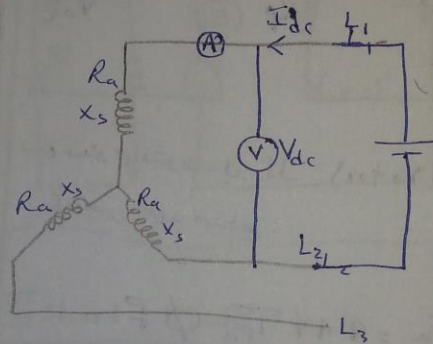 I dc L1
A
Ra
Xs
V Vdc
Ra Xs Ra
Xs
L2
L3